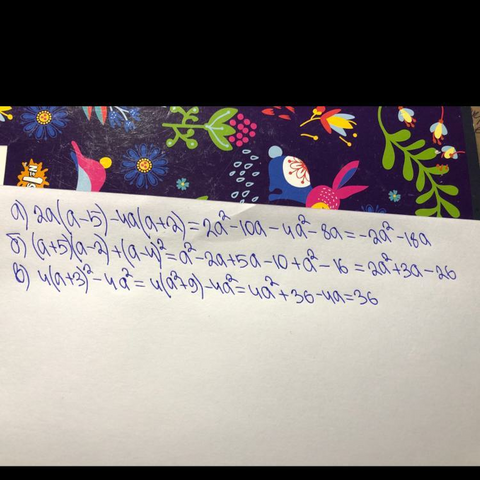 а) 2a(a-15)-4a(a+2)=2a²-10a-4a²-8a=-2a²-18a
б) (a+5)(a-2)+(a-4)²=a²-2a+5a-10+a²-16=2a²+3a-26
в) 4(a+3)²-4a²=4(a²+9)-4a²=4a²+36-4a=36